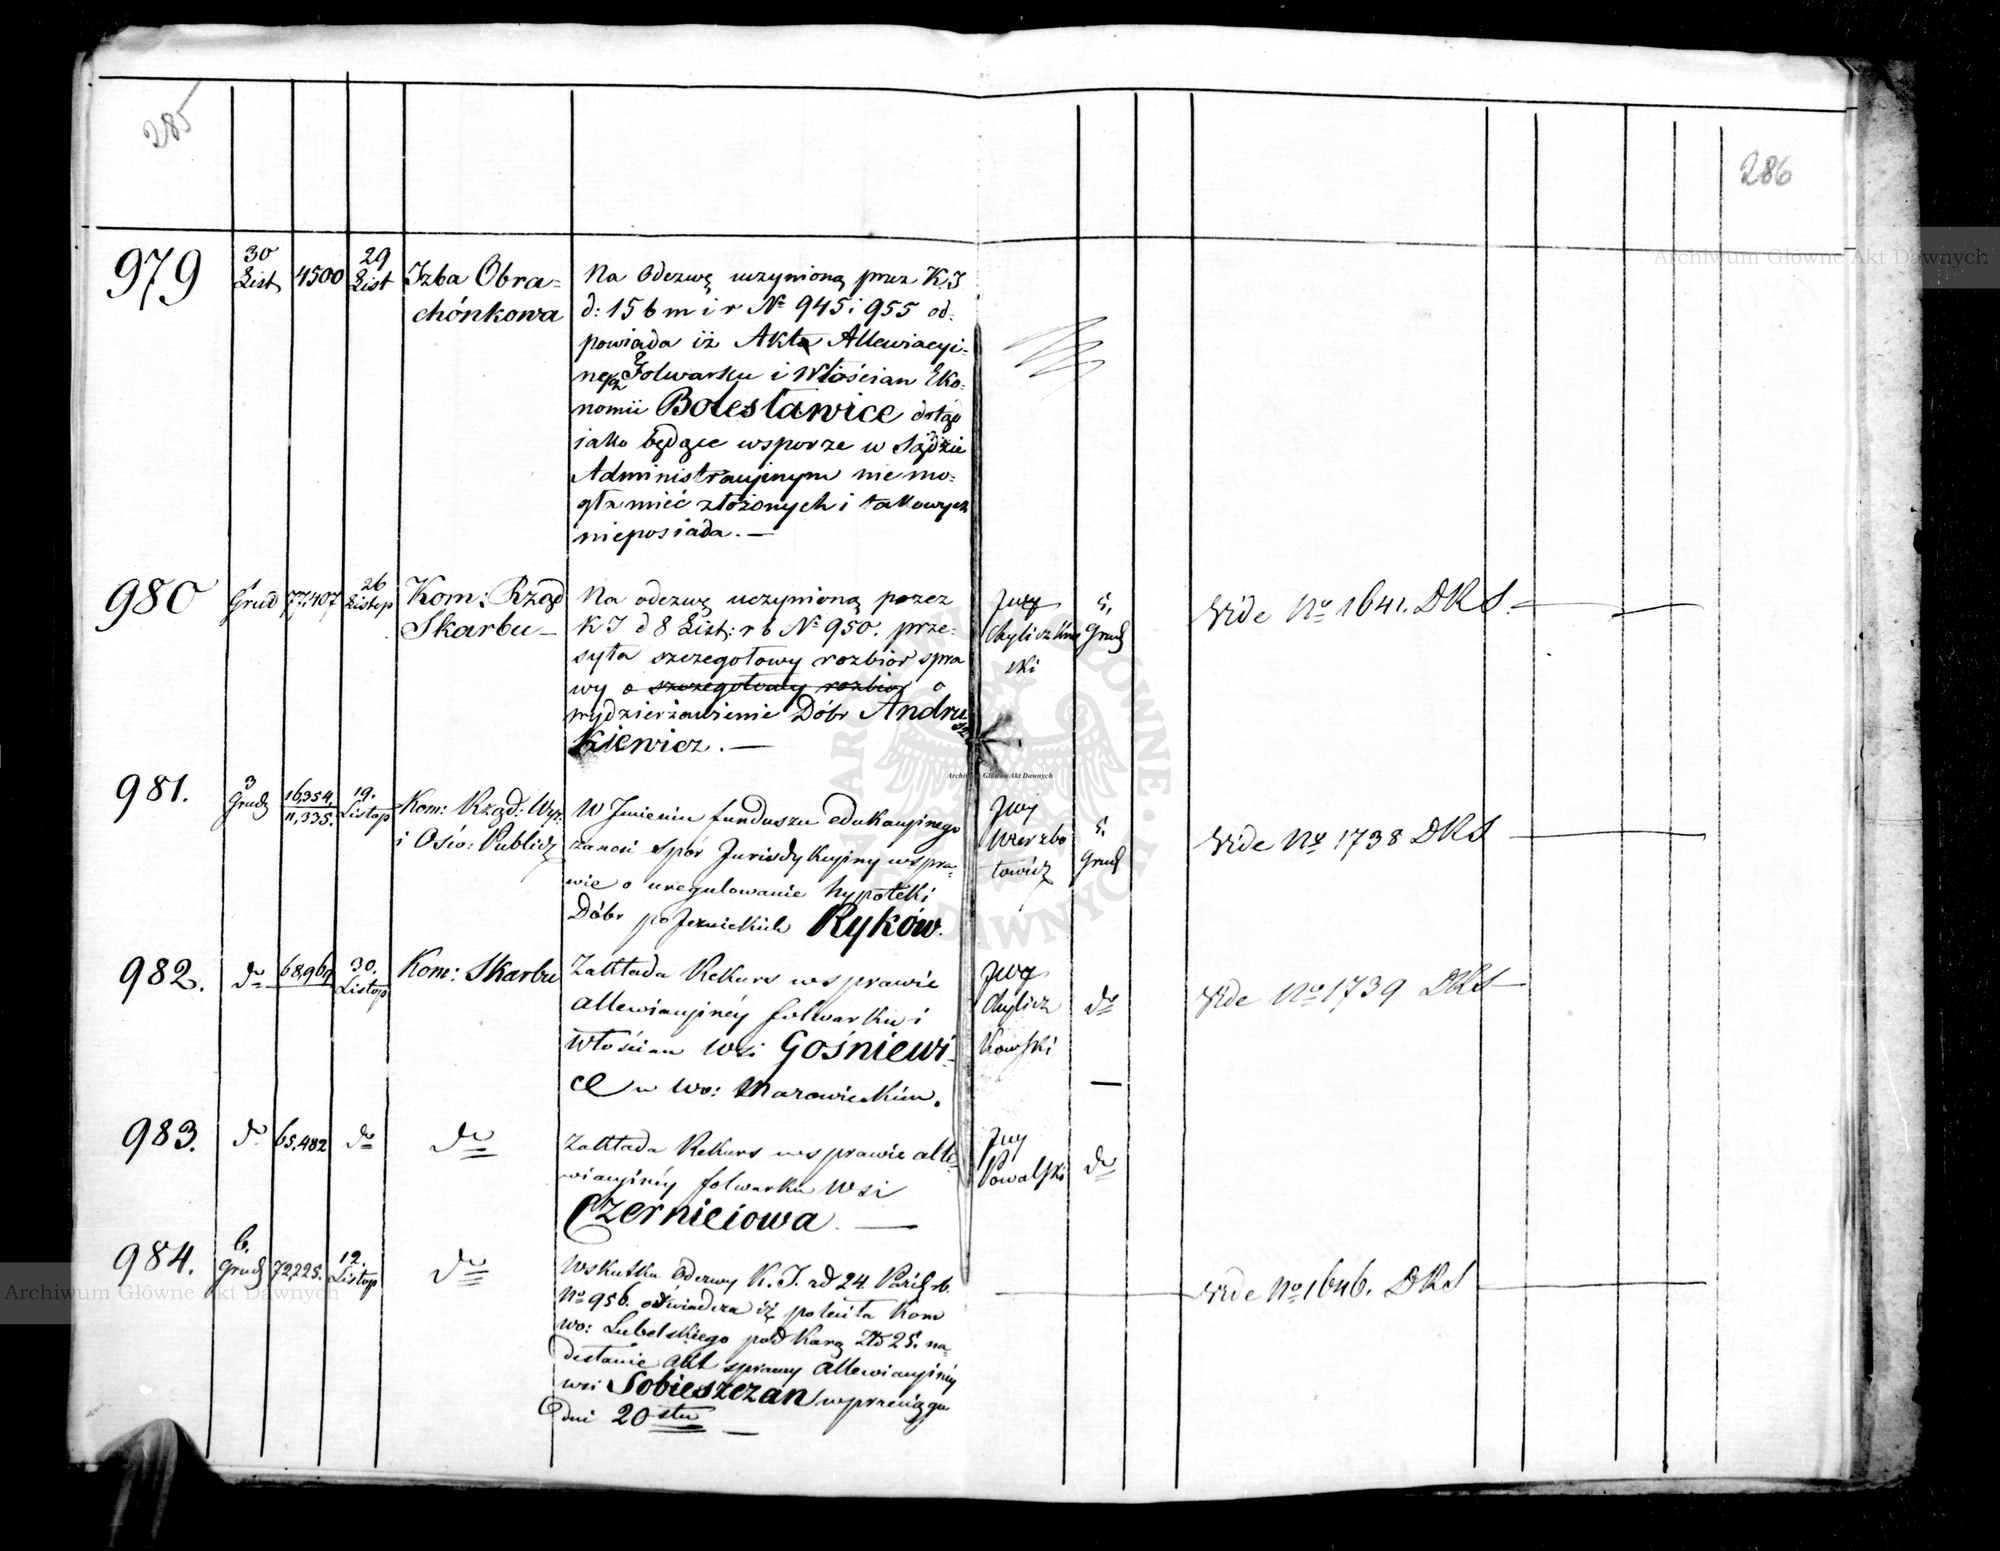 285
286
979
30
List
4500
29
List
Izba Obra=
chónkowa
Na Odezwę uczynioną przez K. J
d: 15 b m i r No 945 i 955 od=
powiada iż Akta Allewiacyi=
Folwarku i Włościan Eko=
nomii Bolesławice dotąd
iako będące wsporze w Sądzie
Administracyinym nie mo=
gła mieć złożonych i takowych
nieposiada. —
980
1
Grud
77,407
26
Listop
Kom: Rząd
Skarbu —
Na odezwę uczynioną przez
K J d 8 List: r b No 950. prze=
syła szczegołowy rozbiór spra
wy o szczegołowy rozbiór o
wydzierżawienie Dóbr Andru
sz
kiewicz. —
Chylicz
ski
5.
Grud
Vide No 1641. DKS. —
981.
3
Grud
16,354.
11,335.
19.
Listop
Kom: Rząd: Wyz:
i Ośw: Publicz
W Jmieniu funduszu edukacyinego
zanosi spór Jurisdykcyiny wspra=
wie o uregulowanie hypoteki
Dóbr pojezuickich Ryków.
Wierzbo
łowicz
5.
Grud
Vide No 1738 DKS —
982.
do
68,969
30.
Listop
Kom: Skarbu
Zakłada Rekurs wsprawie
allewiacyinéy folwarku i
Włościan Wsi Gośniewi=
ce w Wo: Mazowieckim.
Chylicz
kowski
do
—
Vide No 1739 DKS —
983.
do
65,482
do
do
Zakłada Rekurs wsprawie alle=
wiacyinéy folwarku Wsi
Czernieiowa. —
Kowalski
do
984.
6.
Grud
72,225.
12.
Listop
do
Wskutku Odezwy K. J. zd 24 Paźd: rb.
No 956. oświadcza iż poleciła Kom
wo: Lubelskiego pod Karą Złp 25. na=
desłanie akt sprawy allewiacyinéy
wsi Sobieszczan wprzeciągu
dni 20 stu —
Vide No 1646. DKS —
Archiwum Główne Akt Dawnych
Archiwum Główne Akt Dawnych
Archiwum Główne Akt Dawnych
ARCHIWUM GŁÓWNE AKT DAWNYCH